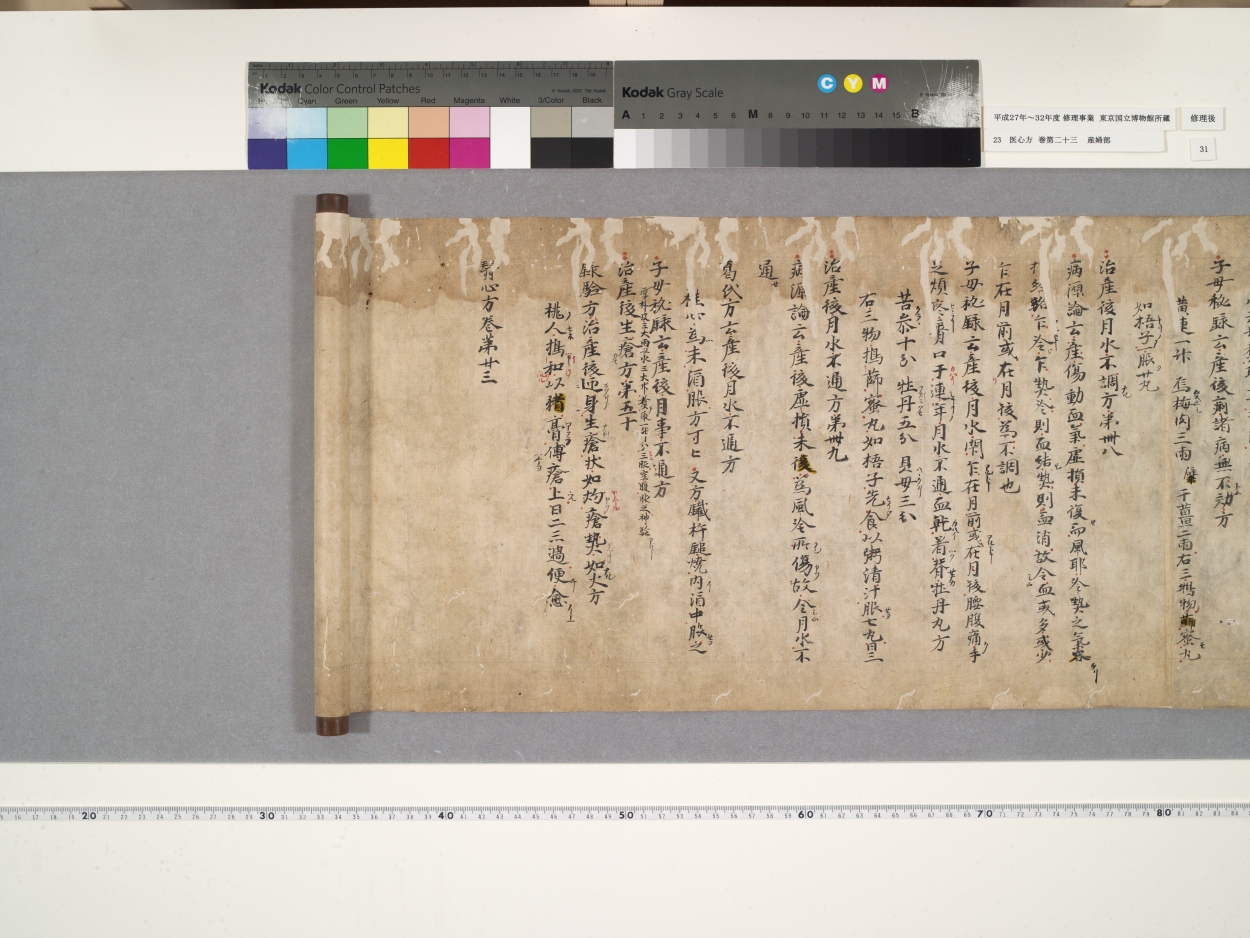 Kodak Color Control Patches
Cyan Green Yellow Red Magenta White 3/Color Black
Kodak Gray Scale
C Y M
A 1 2 3 4 5 6 M 8 9 10 11 12 13 14 15 B
平成27年～32年度 修理事業 東京国立博物館所蔵
23 医心方 巻第二十三 産婦部
修理後
31
子母秘録云産後痢諸病無不効方
黄連一升 烏梅肉三両 干薑二両右三物篩蜜丸
如梧子服廿丸
治産後月水不調方第卌八
病源論云産傷動血氣虚損未復而風耶冷熱之氣客
経絡乍冷乍熱冷則血結熱則血消故令血或多或少
乍在月前或在月後為不調也
子母秘録云産後月水閇乍在月前或在月後腰腹痛手
足煩疼唇口干連年月水不通血乾著脊牡丹丸方
苦参十分 牡丹五分 貝母三分
右三物搗篩蜜丸如梧子先食以粥清汁服七丸日三
治産後月水不通方第卌九
病源論云産後虚損未復為風冷所傷故令月水不
通
葛氏方云産後月水不通方
桂心為末酒服方寸匕 又方鐵杵鎚焼内酒中服之
子母秘録云産後月事不通方
治産後生瘡方第五十
録験方治産後遍身生瘡状如灼瘡熱如火方
桃人搗和以猪膏傅瘡上日二三遍便愈
醫心方巻第廿三
20 30 40 50 60 70 80